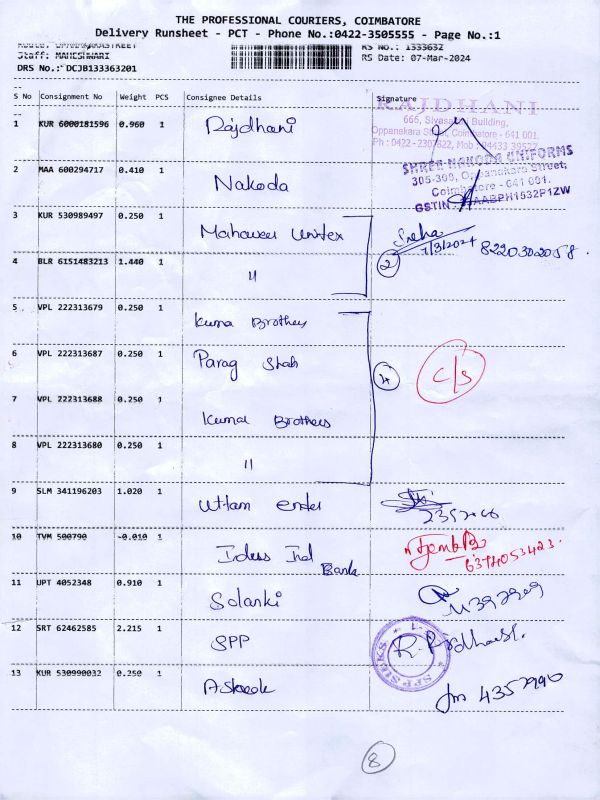 THE PROFESSIONAL COURIERS, COIMBATORE
Delivery Runsheet - PCT - Phone No.:0422-3505555 - Page No.:1
Staff: MAHESHWARI
RS No.: 1333632
DRS No.: DCJB133363201
RS Date: 07-Mar-2024
S No Consignment No Weight PCS Consignee Details Signature
RAJDHANI
1 KUR 6000181596 0.960 1 Rajdhani
2 MAA 600294717 0.410 1 Nakoda
SHREE NAKODA UNIFORMS
305-306, Oppanakara Street,
Coimbatore - 641 001.
3 KUR 530989497 0.250 1 Mahaveer Unitex Sneha
7/3/2024 8220302058.
4 BLR 6151483213 1.440 1 11 2
5 VPL 222313679 0.250 1 Kumar Brothers
6 VPL 222313687 0.250 1 Parag Shah 4 C/S
7 VPL 222313688 0.250 1 Kumar Brothers
8 VPL 222313680 0.250 1 11
9 SLM 341196203 1.020 1 Uttam
10 TVM 500790 -0.010 1 Indus Ind
Bank 6374053423.
11 UPT 4052348 0.910 1 Solanki
12 SRT 62462585 2.215 1 SPP
13 KUR 530990032 0.250 1 4357990
8